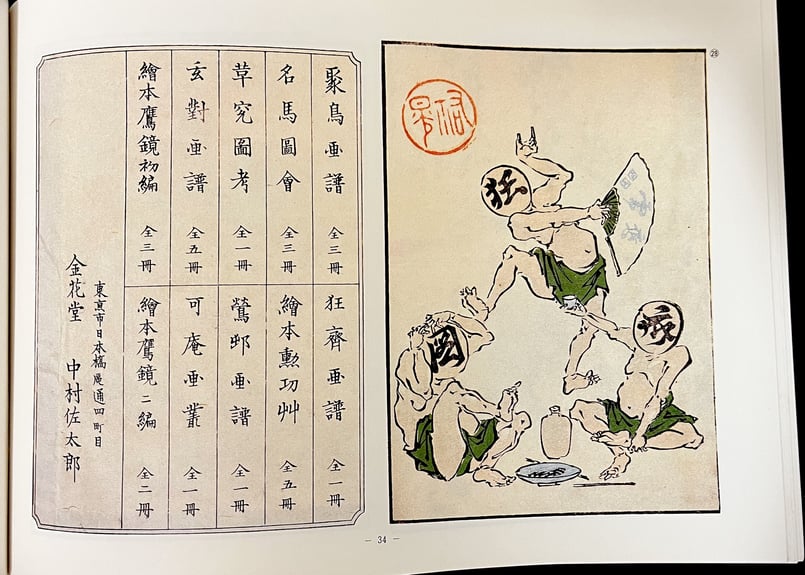 聚鳥画譜 全三冊
名馬圖會 全三冊
草究圖考 全一冊
玄對画譜 全五冊
繪本鷹鏡初編 全三冊
狂齊画譜 全一冊
繪本勲功艸 全五冊
鶯邨画譜 全一冊
可庵画叢 全一冊
繪本鷹鏡二編 全二冊
東京市日本橋區通四町目
金花堂 中村佐太郎
㉘
狂
- 34 -